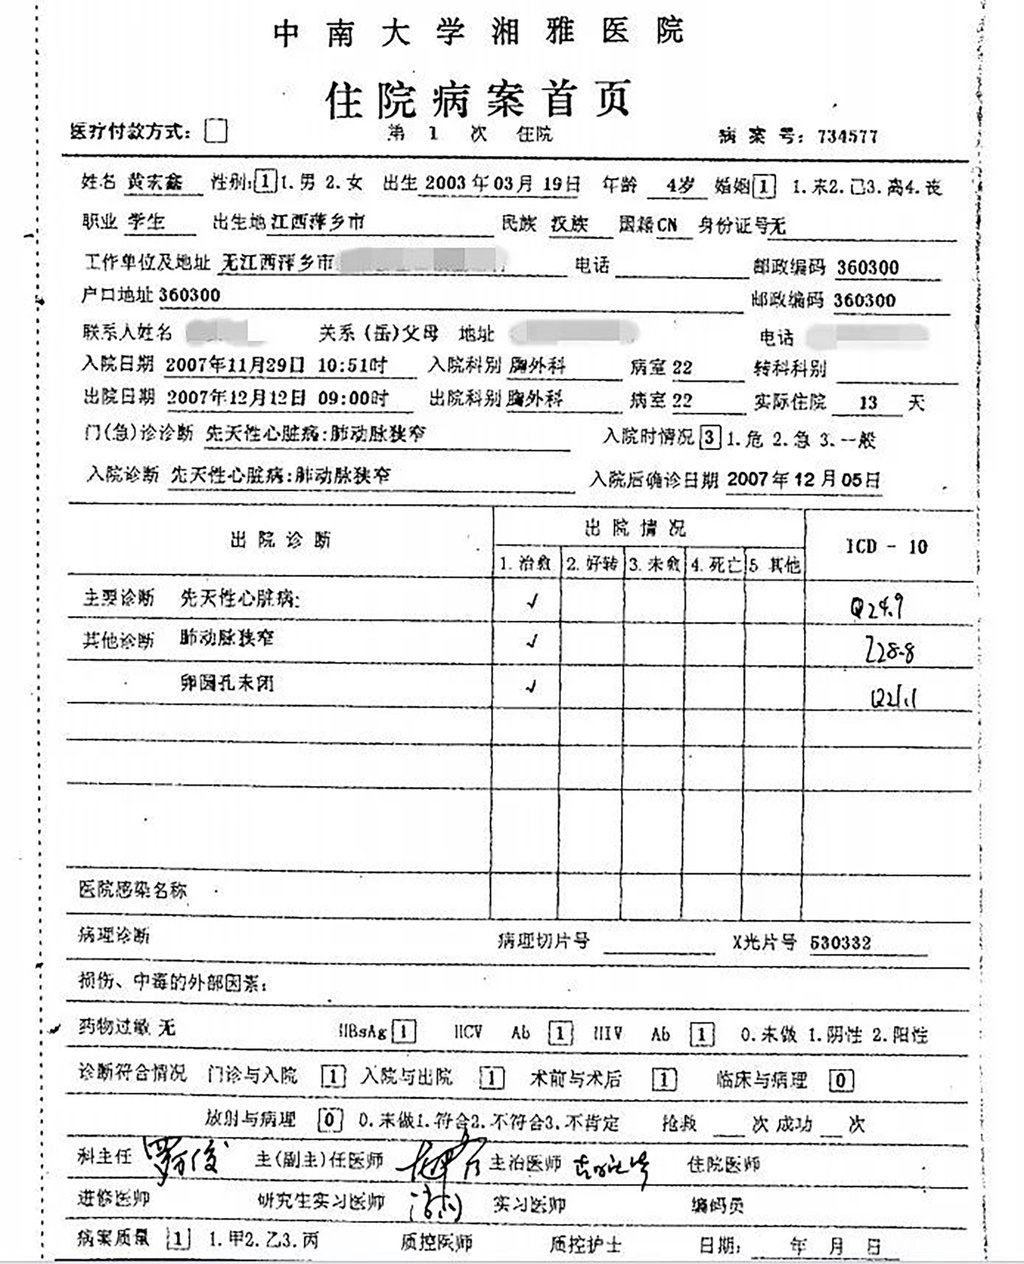 中南大学湘雅医院
住院病案首页
医疗付款方式: 第 1 次 住院 病案号: 734577
姓名 黄宏鑫 性别: 1 1.男 2.女 出生 2003年03月19日 年龄 4岁 婚姻 1 1.未2.已3.离4.丧
职业 学生 出生地 江西萍乡市 民族 汉族 国籍 CN 身份证号 无
工作单位及地址 无江西萍乡市 电话 邮政编码 360300
户口地址 360300 邮政编码 360300
联系人姓名 关系 (岳)父母 地址 电话
入院日期 2007年11月29日 10:51时 入院科别 胸外科 病室 22 转科科别
出院日期 2007年12月12日 09:00时 出院科别 胸外科 病室 22 实际住院 13 天
门(急)诊诊断 先天性心脏病:肺动脉狭窄 入院时情况 3 1.危 2.急 3.一般
入院诊断 先天性心脏病:肺动脉狭窄 入院后确诊日期 2007年12月05日
出院诊断 出院情况 ICD - 10
1.治愈 2.好转 3.未愈 4.死亡 5 其他
主要诊断 先天性心脏病: √ Q24.9
其他诊断 肺动脉狭窄 √ I28.8
卵圆孔未闭 √ Q21.1
医院感染名称
病理诊断 病理切片号 X光片号 530332
损伤、中毒的外部因素:
药物过敏 无 HBsAg 1 HCV Ab 1 HIV Ab 1 0.未做 1.阴性 2.阳性
诊断符合情况 门诊与入院 1 入院与出院 1 术前与术后 1 临床与病理 0
放射与病理 0 0.未做1.符合2.不符合3.不肯定 抢救 次 成功 次
科主任 主(副主)任医师 主治医师 住院医师
进修医师 研究生实习医师 实习医师 编码员
病案质量 1 1.甲2.乙3.丙 质控医师 质控护士 日期: 年 月 日